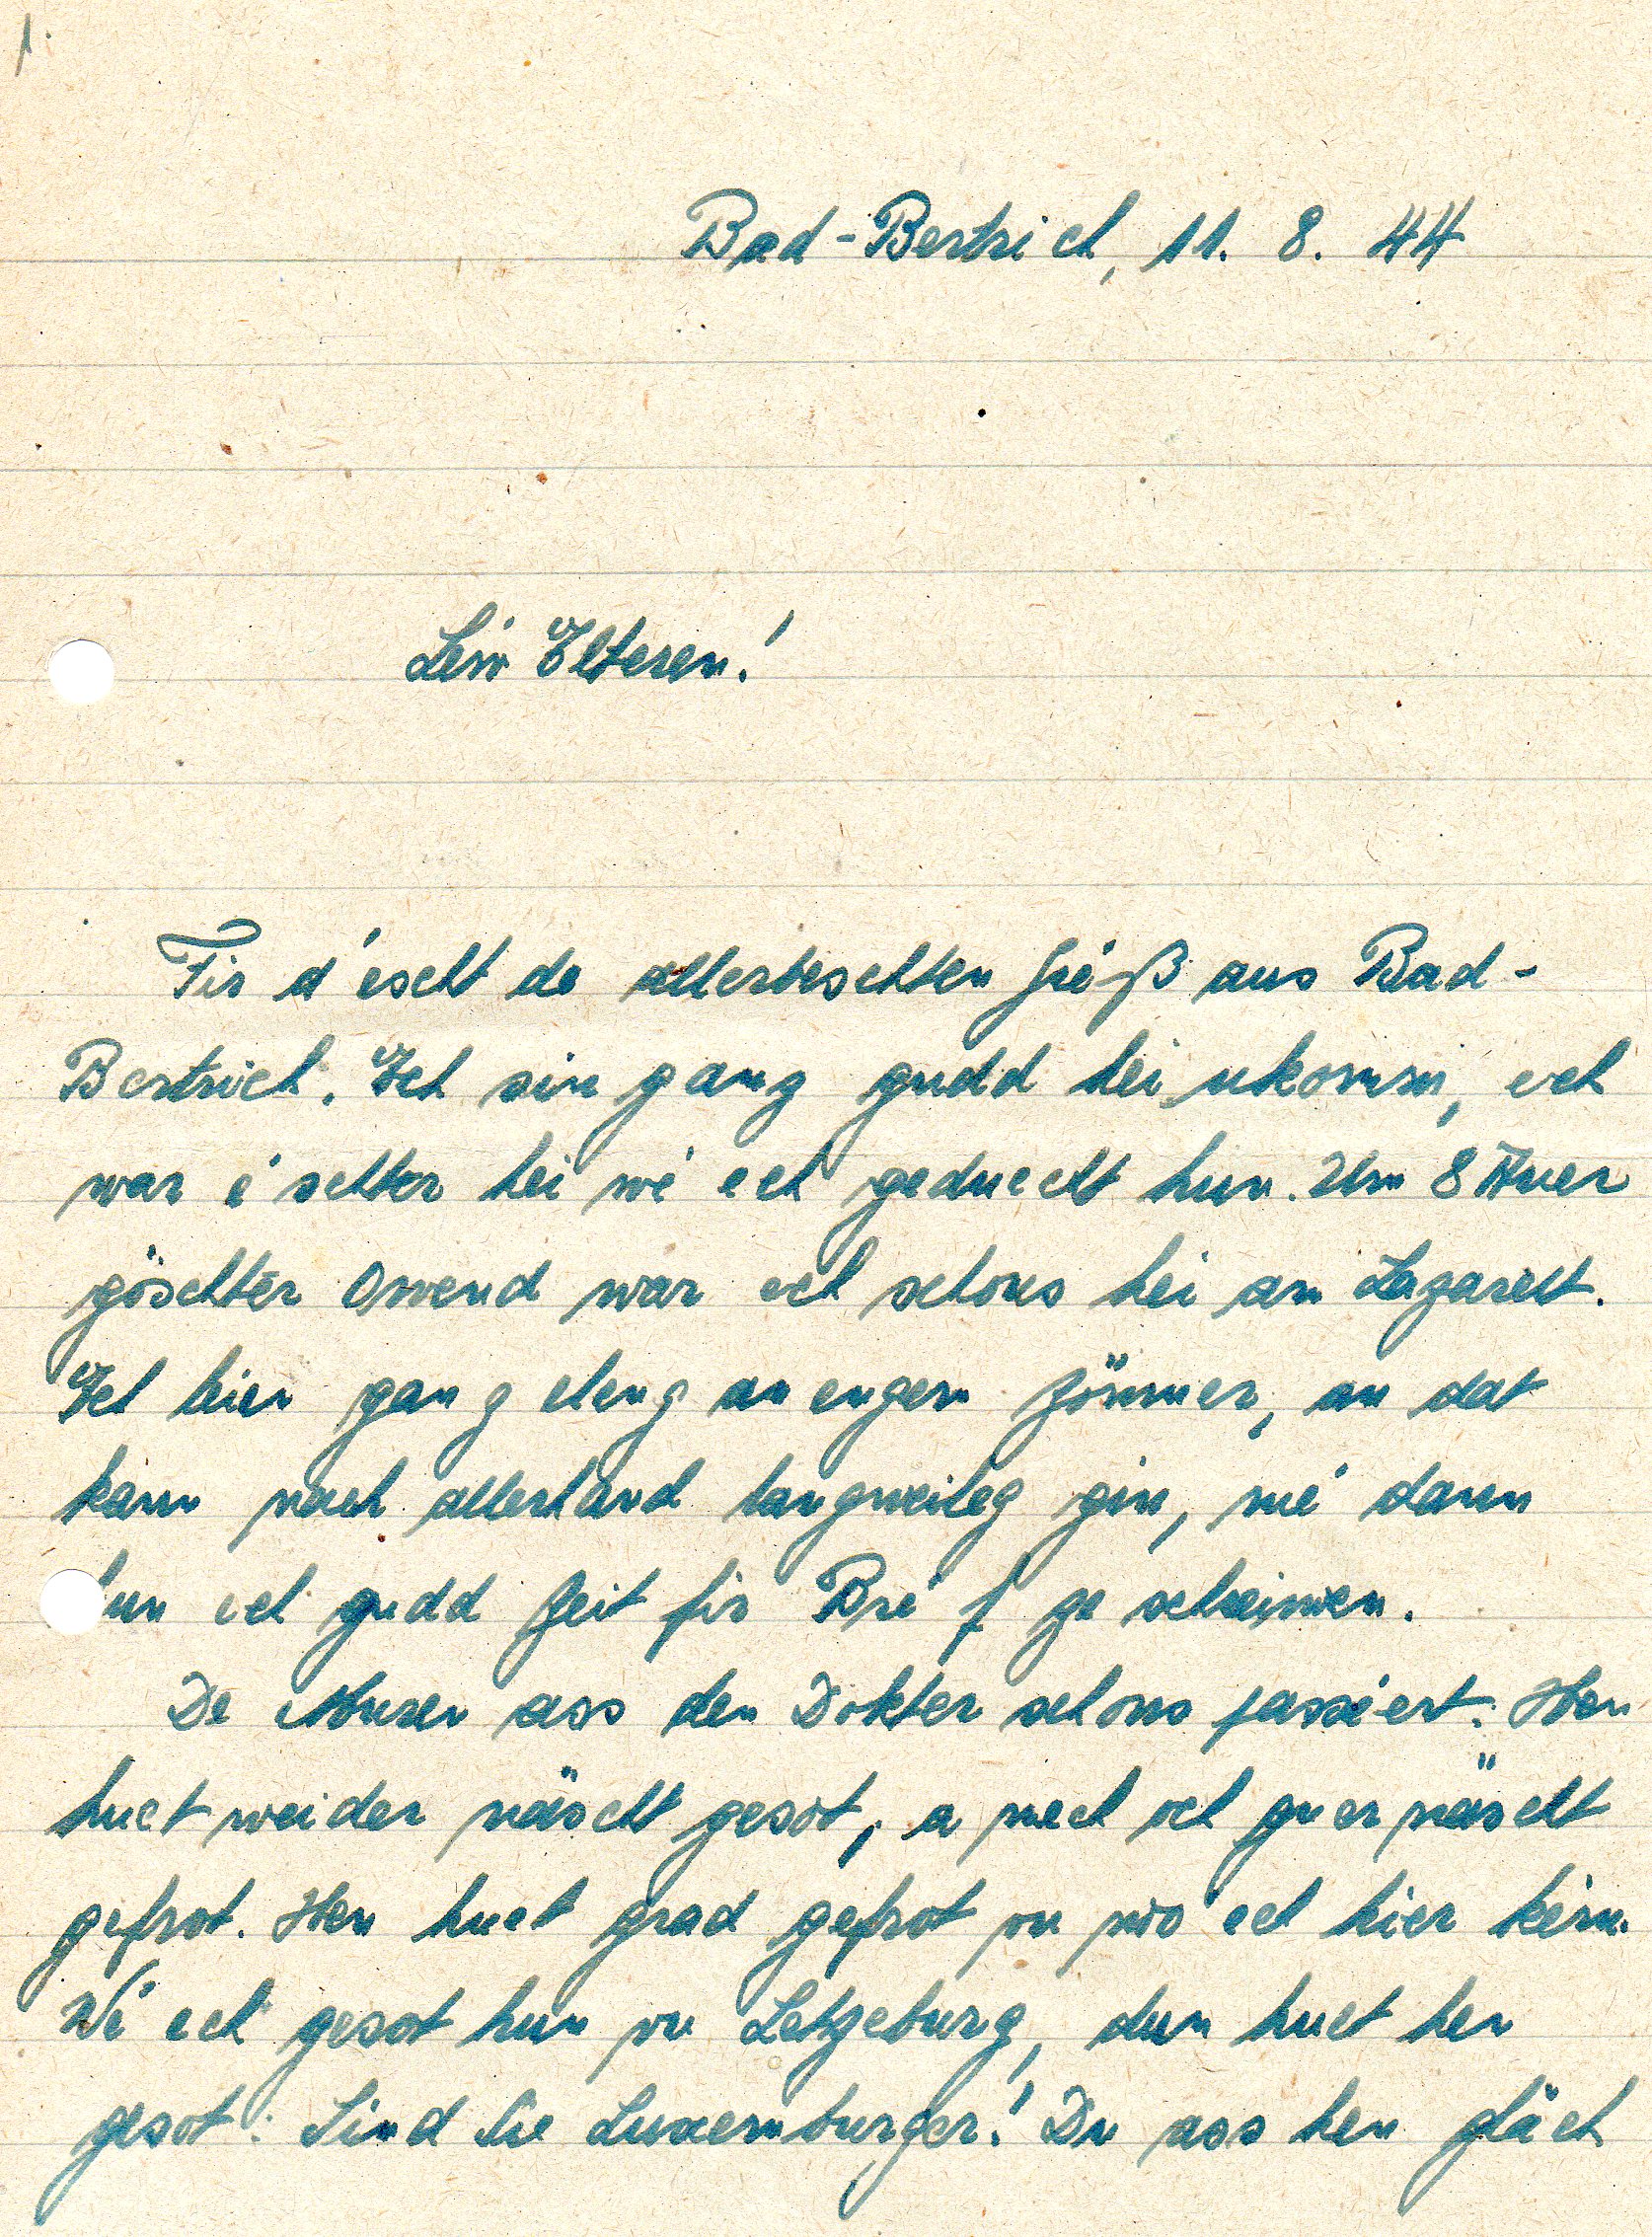 1.
Bad-Bertrich, 11. 8. 44
Léiw Elteren!
Fir d'éscht de allerbeschten Gréß aus Bad-
Bertrich. Ech sin ganz gudd hei ukomm, ech
war é'schter hei wé ech geduecht hun. Um 8 Auer
göschter Owend war ech schons hei am Lazarett.
Ech leien ganz eleng an engem Zömmer, an dat
kann nach allerhand langweileg gin, mé dann
hun ech gudd Zeit fir Bréf ze schreiwen.
De Muren ass den Dokter schons passéiert. Hen
huet weider näischt gesot, a mech och guer näischt
gefrot. Hen huet grad gefrot vu wo ech hier kém.
Wé ech gesot hun vu Letzeburg, dun huet hen
gesot: Sind Sie Luxemburger! Du ass hen gläch